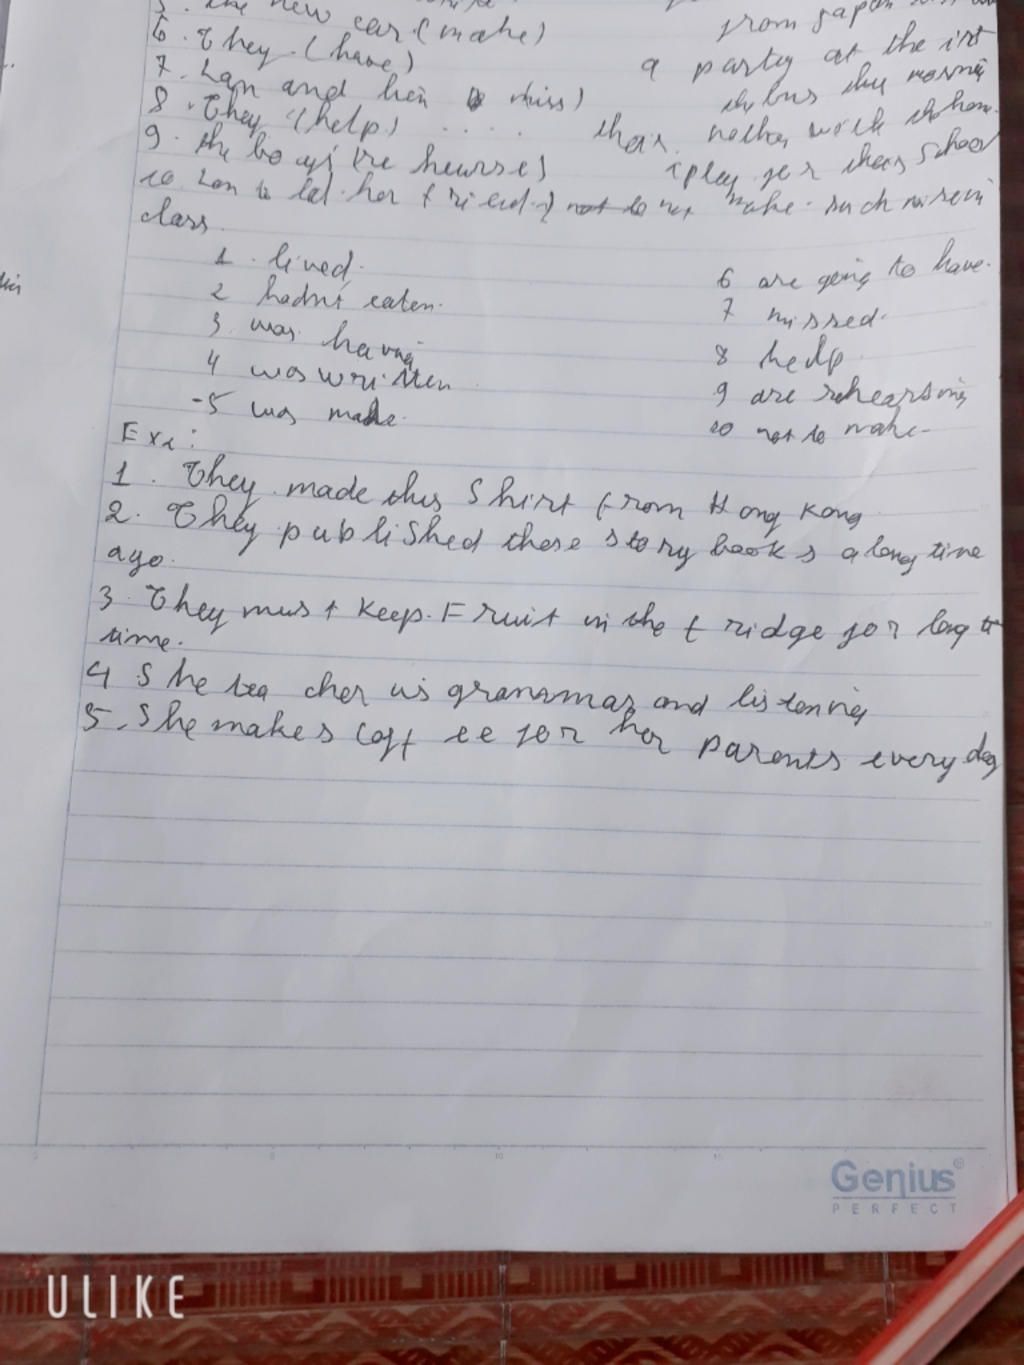 5. the new car (make) from Japan
6. They (have) a party at the
7. Lan and hen miss) the bus the morning
8. They (help) .... their mother with the
9. the boys (re heurse) (play for their School
10. Lan to her friend not to make such
class.
1. lived.
2 hadn't eaten.
3. was having
4 was written
-5 was made.
6 are going to have.
7 missed.
8 help
9 are rehearsing
10 not to make-
Ex2:
1. They made this Shirt from Hong Kong
2. They published these story books a long time
ago.
3 They must keep. Fruit in the fridge for long
time.
4 She teacher us grammar and listening
5. She makes coffee for her parents every day
Genius®
PERFECT
ULIKE